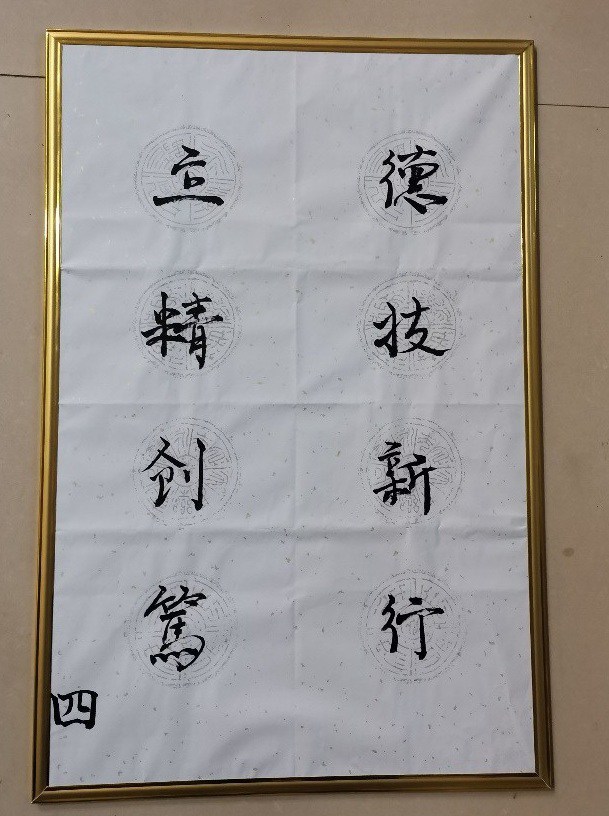 立德
精技
创新
篤行
四